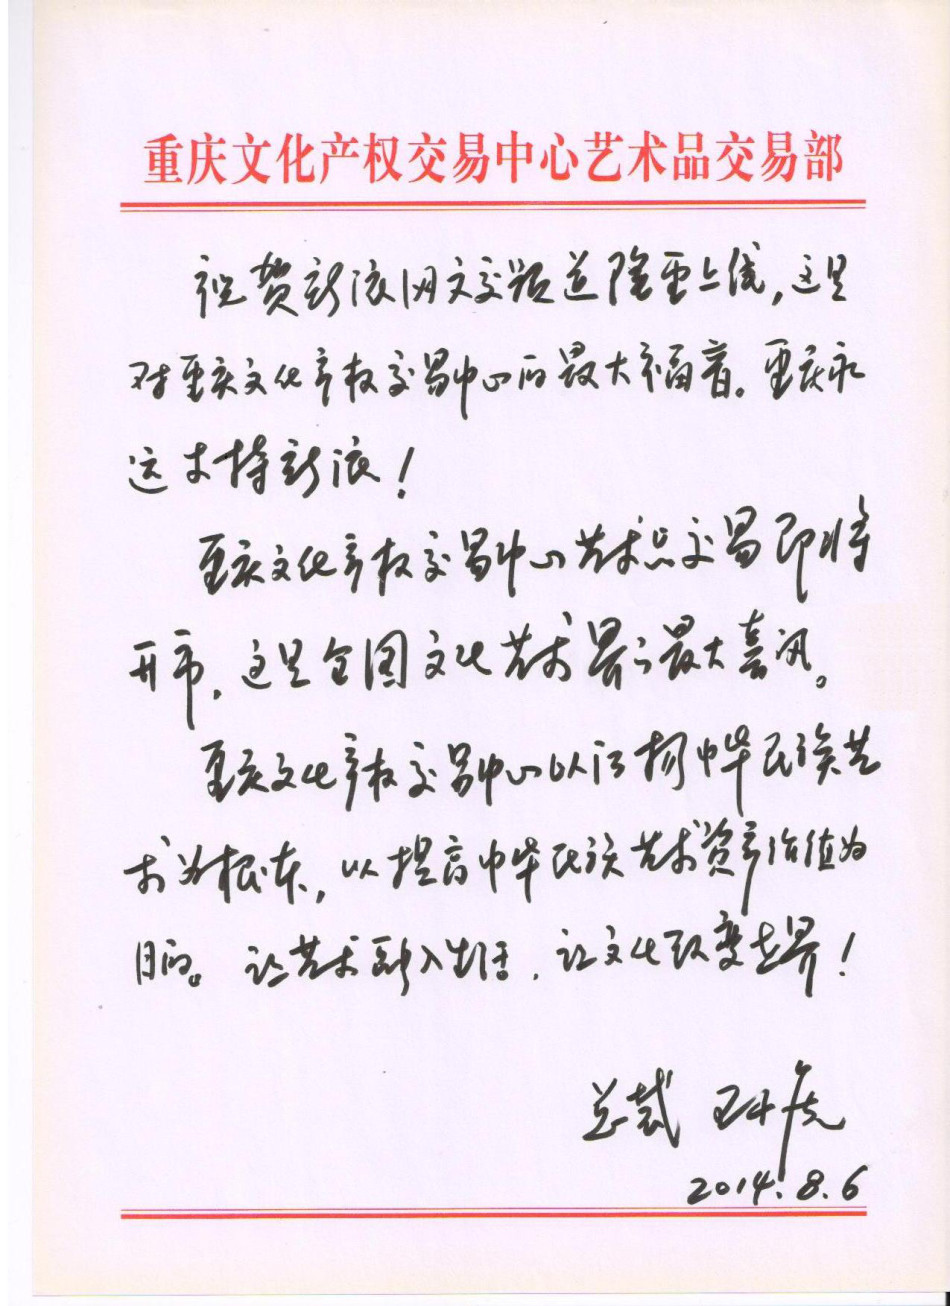 重庆文化产权交易中心艺术品交易部
祝贺新浪网文交频道隆重上线，这是
对重庆文化产权交易中心的最大福音。重庆永
远支持新浪！
重庆文化产权交易中心艺术品交易即将
开市，这是全国文化艺术界之最大喜讯。
重庆文化产权交易中心以弘扬中华民族艺
术为根本，以提高中华民族艺术资产价值为
目的。让艺术融入生活，让文化改变世界！
总裁
2014.8.6